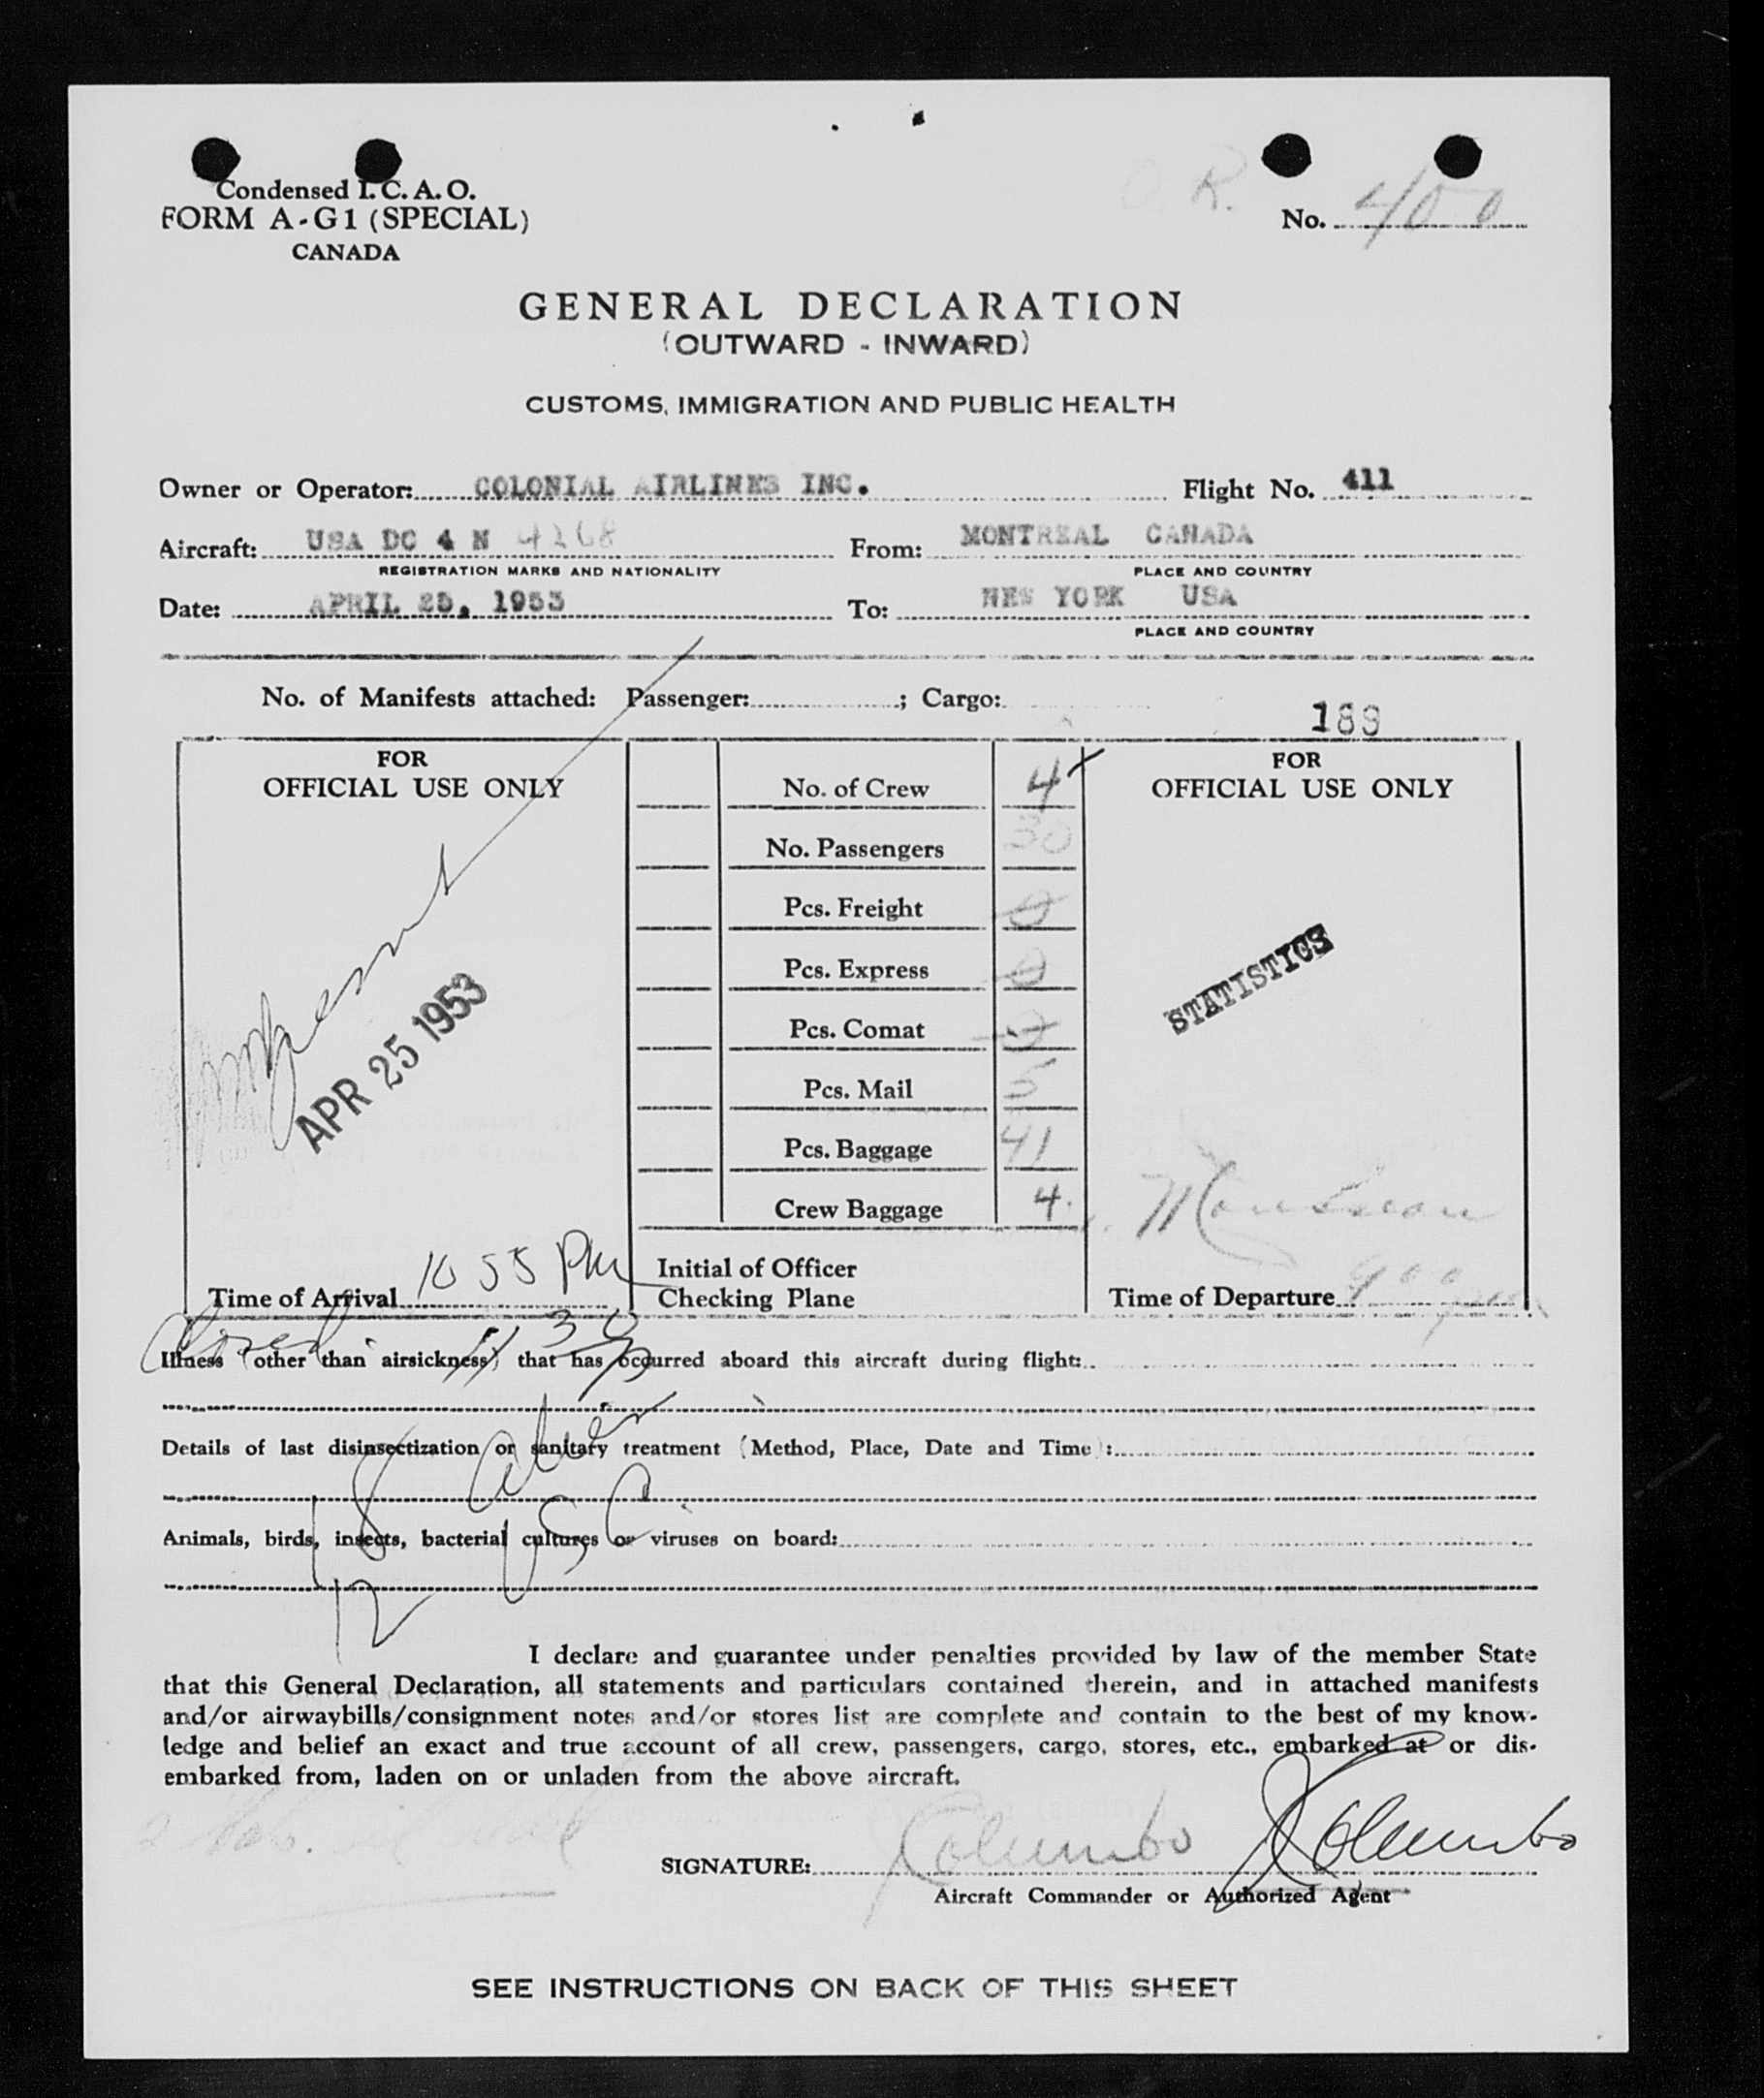 Condensed I. C. A. O.
FORM A-G1 (SPECIAL)
CANADA
R.
No. 400
GENERAL DECLARATION
(OUTWARD - INWARD)
CUSTOMS, IMMIGRATION AND PUBLIC HEALTH
Owner or Operator: COLONIAL AIRLINES INC. Flight No. 411
Aircraft: USA DC 4 N 4268 From: MONTREAL CANADA
REGISTRATION MARKS AND NATIONALITY PLACE AND COUNTRY
Date: APRIL 25, 1953 To: NEW YORK USA
PLACE AND COUNTRY
No. of Manifests attached: Passenger: ; Cargo:
189
FOR OFFICIAL USE ONLY
APR 25 1953
Time of Arrival 10 55 PM
No. of Crew 4
No. Passengers 30
Pcs. Freight 0
Pcs. Express 0
Pcs. Comat 0
Pcs. Mail 5
Pcs. Baggage 41
Crew Baggage 4.
Initial of Officer
Checking Plane
FOR OFFICIAL USE ONLY
STATISTICS
Time of Departure 900
11 30
Illness (other than airsickness) that has occurred aboard this aircraft during flight:
Details of last disinsectization or sanitary treatment (Method, Place, Date and Time):
Animals, birds, insects, bacterial cultures or viruses on board:
I declare and guarantee under penalties provided by law of the member State
that this General Declaration, all statements and particulars contained therein, and in attached manifests
and/or airwaybills/consignment notes and/or stores list are complete and contain to the best of my know-
ledge and belief an exact and true account of all crew, passengers, cargo, stores, etc., embarked at or dis-
embarked from, laden on or unladen from the above aircraft.
SIGNATURE: Columbo Columbo
Aircraft Commander or Authorized Agent
SEE INSTRUCTIONS ON BACK OF THIS SHEET